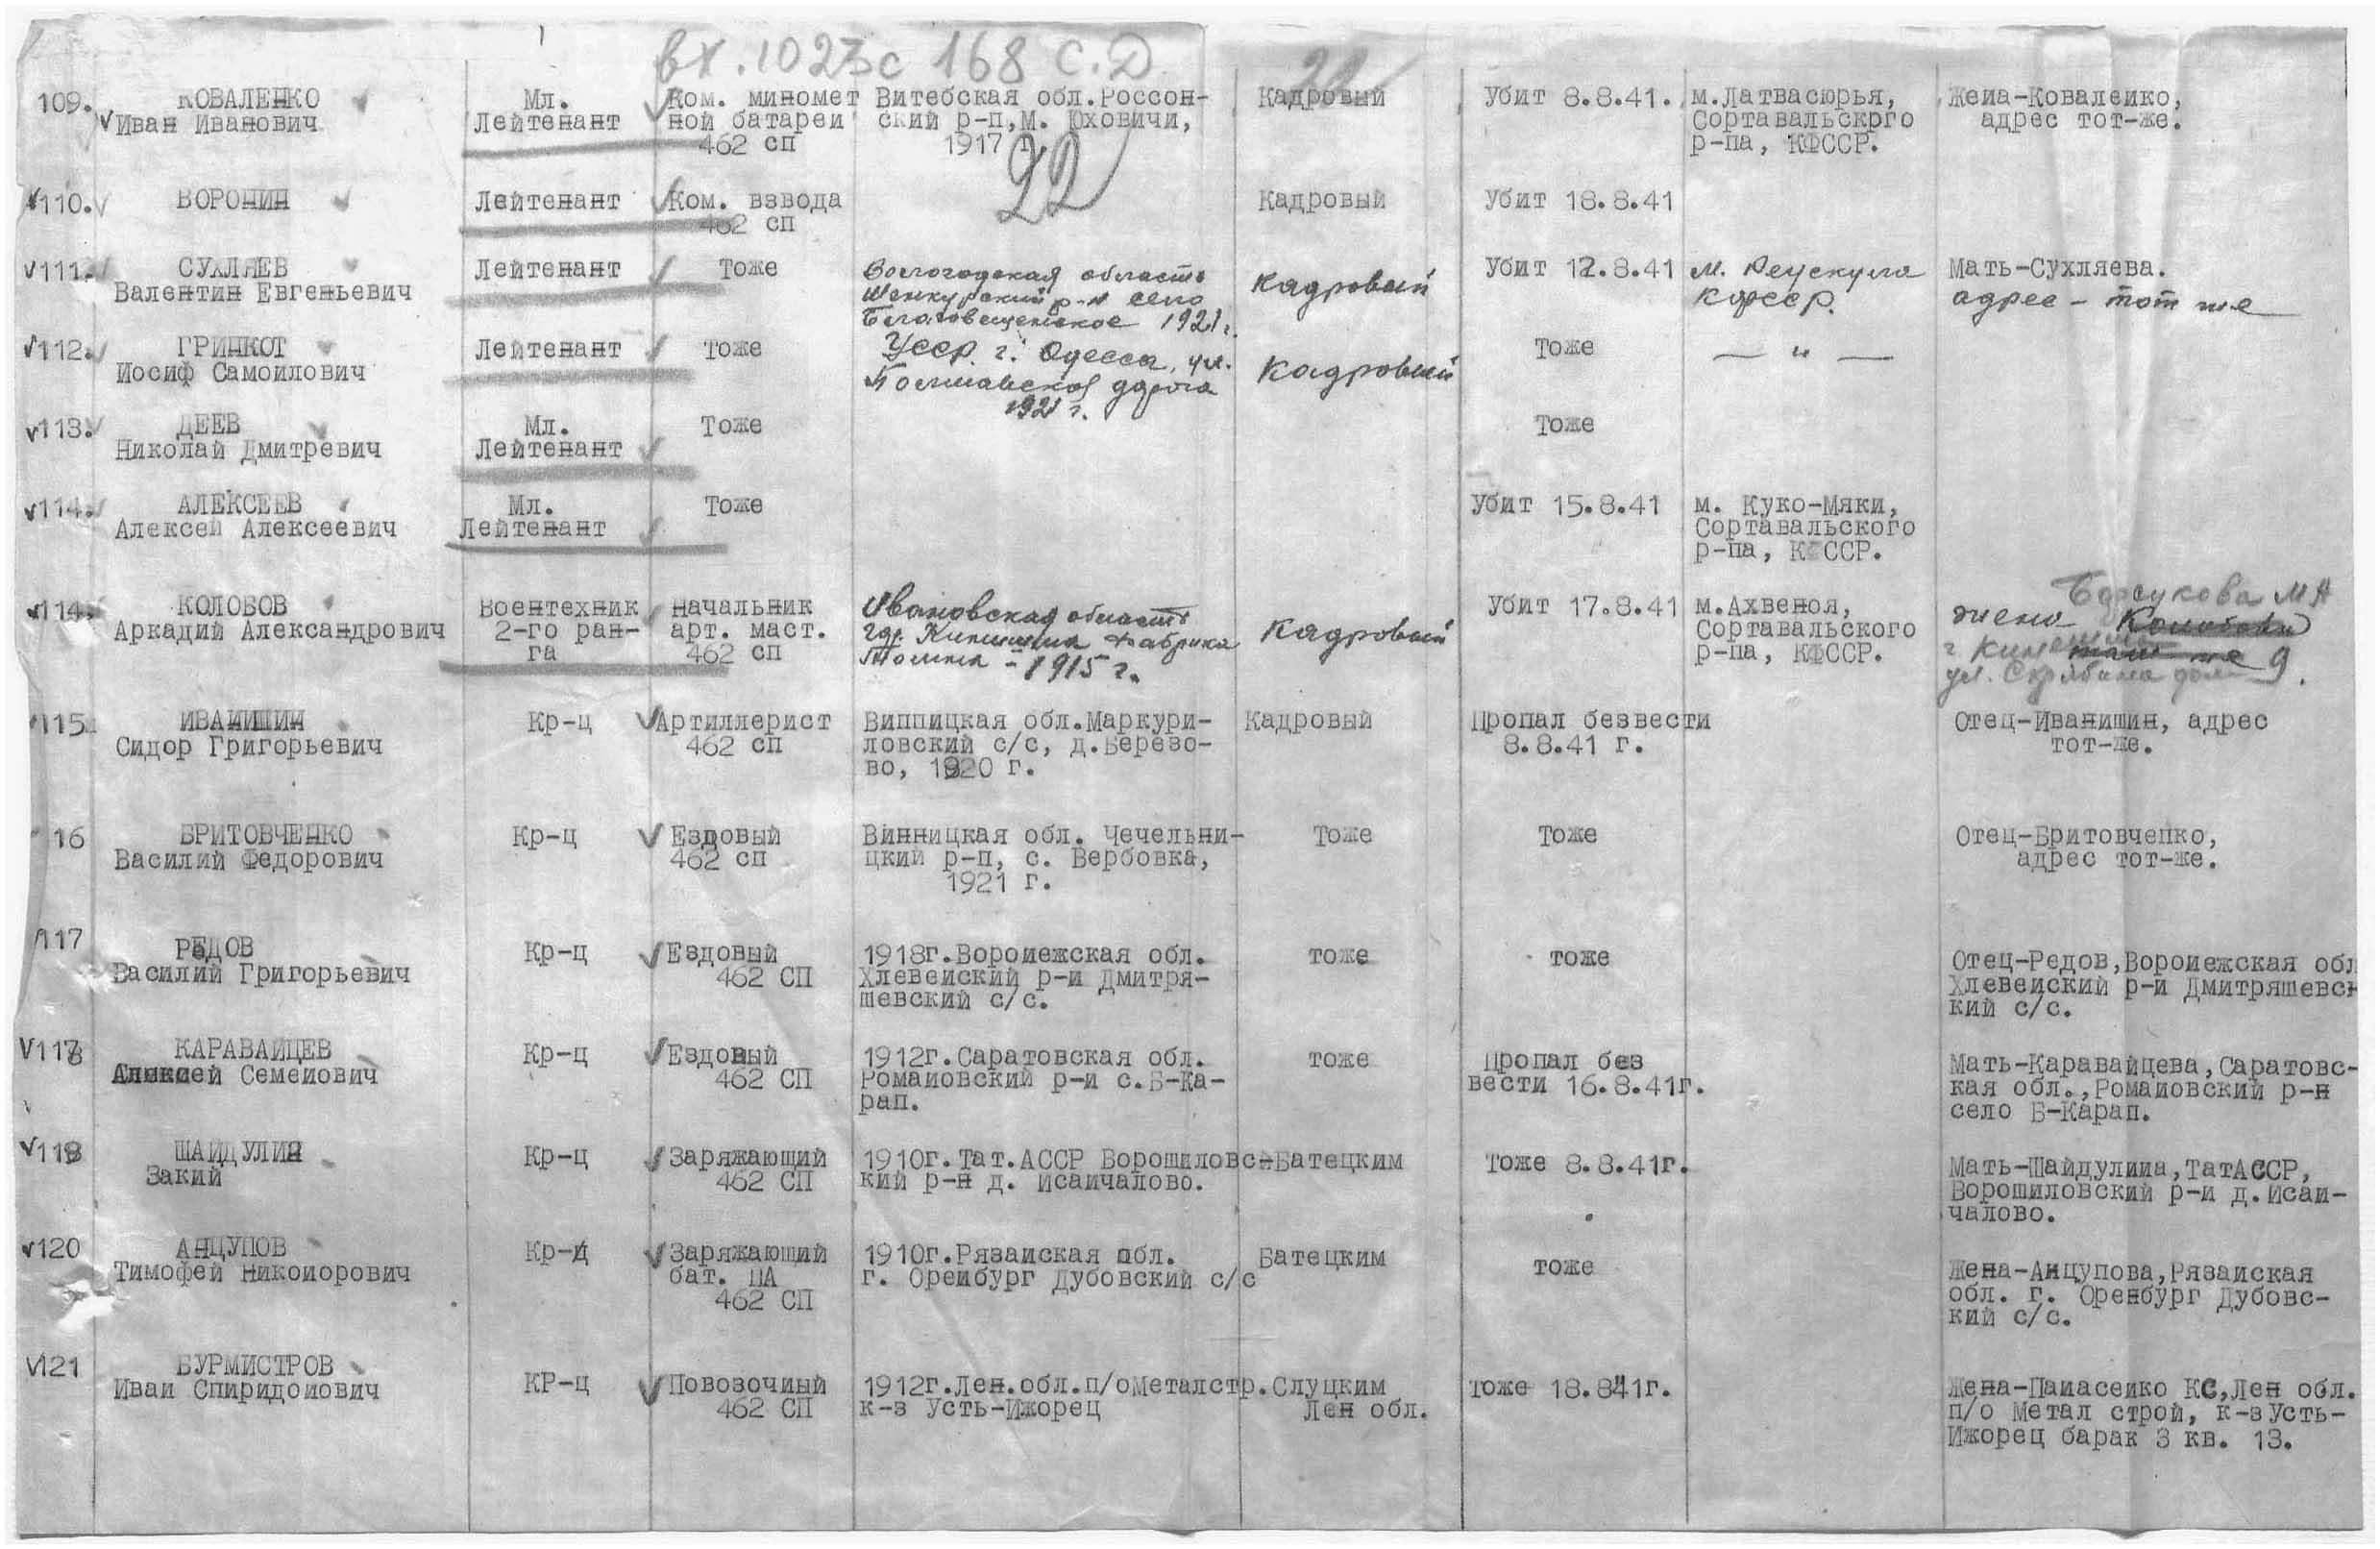 вх.1023с 168 С.Д
22
109. КОВАЛЕНКО Мл. Ком. миномет Витебская обл.Россон- Кадровый Убит 8.8.41. м.Латвасюрья, Жена-Коваленко,
Иван Иванович Лейтенант ной батареи ский р-н,м. Юховичи, Сортавальскрго адрес тот-же.
462 сп 1917 г. р-на, КФССР.
22
110. ВОРОНИН Лейтенант Ком. взвода Кадровый Убит 18.8.41
462 сп
111. СУХЛЯЕВ Лейтенант Тоже Вологодская область Кадровый Убит 12.8.41 м. КФССР. Мать-Сухляева.
Валентин Евгеньевич Шенкурский р-н село адрес - тот же
Благовещенское 1921г.
112. ГРИНКОТ Лейтенант Тоже УССР. г. Одесса, ул. Кадровый Тоже — " —
Иосиф Самоилович дорога
1921 г.
113. ДЕЕВ Мл. Тоже Тоже
Николай Дмитревич Лейтенант
114. АЛЕКСЕЕВ Мл. Тоже Убит 15.8.41 м. Куко-Мяки,
Алексей Алексеевич Лейтенант Сортавальского
р-на, КФССР.
114. КОЛОБОВ Воентехник Начальник Ивановская область Кадровый Убит 17.8.41 м.Ахвеноя, жена Борсукова М А
Аркадий Александрович 2-го ран- арт. маст. гор. Кинешма Фабрика Сортавальского г. Кинешма
га 462 сп Томна - 1915 г. р-на, КФССР. ул. Скрябина дом 9.
115. ИВАНИШИН Кр-ц Артиллерист Винницкая обл.Маркури- Кадровый Пропал безвести Отец-Иванишин, адрес
Сидор Григорьевич 462 сп ловский с/с, д.Березо- 8.8.41 г. тот-же.
во, 1920 г.
16 БРИТОВЧЕНКО Кр-ц Ездовый Винницкая обл. Чечельни- Тоже Тоже Отец-Бритовченко,
Василий Федорович 462 сп цкий р-н, с. Вербовка, адрес тот-же.
1921 г.
117 РЕДОВ Кр-ц Ездовый 1918г.Воронежская обл. тоже тоже Отец-Редов,Воронежская обл
Василий Григорьевич 462 СП Хлевенский р-н Дмитря- Хлевенский р-н Дмитряшевск
шевский с/с. кий с/с.
118 КАРАВАЙЦЕВ Кр-ц Ездовый 1912г.Саратовская обл. тоже Пропал без Мать-Каравайцева,Саратовс-
Алексей Семенович 462 СП Романовский р-н с.Б-Ка- вести 16.8.41г. кая обл.,Романовский р-н
рап. село Б-Карап.
119 ШАЙДУЛИН Кр-ц Заряжающий 1910г.Тат.АССР Ворошиловс- Батецким Тоже 8.8.41г. Мать-Шайдулина,ТатАССР,
Закий 462 СП кий р-н д. Исаичалово. Ворошиловский р-н д.Исаи-
чалово.
120 АНЦУПОВ Кр-ц Заряжающий 1910г.Рязанская обл. Батецким тоже Жена-Анцупова,Рязанская
Тимофей Никонорович бат. ПА г. Оренбург Дубовский с/с обл. г. Оренбург Дубовс-
462 СП кий с/с.
121 БУРМИСТРОВ КР-ц Повозочный 1912г.Лен.обл.п/оМеталстр. Слуцким Тоже 18.841г. Жена-Панасенко КС,Лен обл.
Иван Спиридонович 462 СП к-з Усть-Ижорец Лен обл. п/о Метал строй, к-зУсть-
Ижорец барак 3 кв. 13.